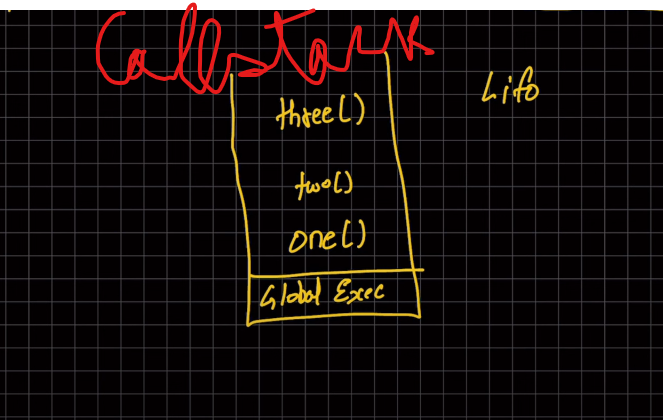 Call stack
Lifo
three()
two()
one()
Global Exec